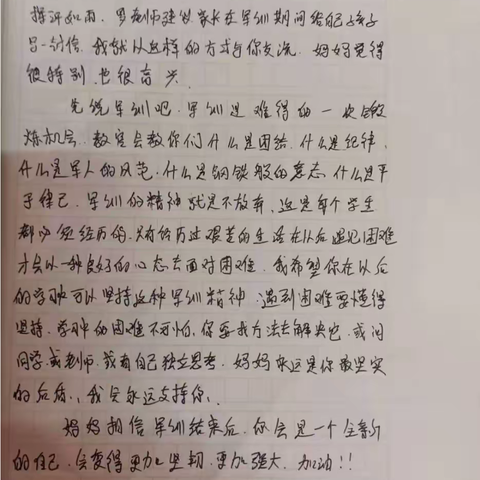 挥汗如雨. 罗老师建议家长在军训期间给自己孩子
写一封信. 我就以这样的方式与你交流. 妈妈觉得
很特别. 也很高兴.
先说军训吧. 军训是难得的一次锻
炼机会. 教官会教你们什么是团结. 什么是纪律.
什么是军人的风范. 什么是钢铁般的意志. 什么是严
于律己. 军训的精神就是不放弃. 这是每个学生
都必须经历的. 只有经历过艰苦的生活在以后遇见困难
才会以一种良好的心态去面对困难. 我希望你在以后
的学习中可以坚持这种军训精神. 遇到困难要懂得
坚持. 学习中的困难不可怕. 你要找方法去解决它. 或问
同学. 或老师. 或有自己独立思考. 妈妈永远是你最坚实
的后盾、我会永远支持你、
妈妈相信军训结束后. 你会是一个全新
的自己. 会变得更加坚韧. 更加强大. 加油!!